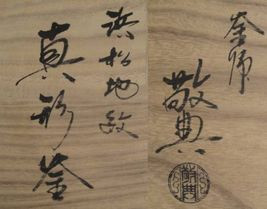 浜松地紋
真形釜
釜師
敬典